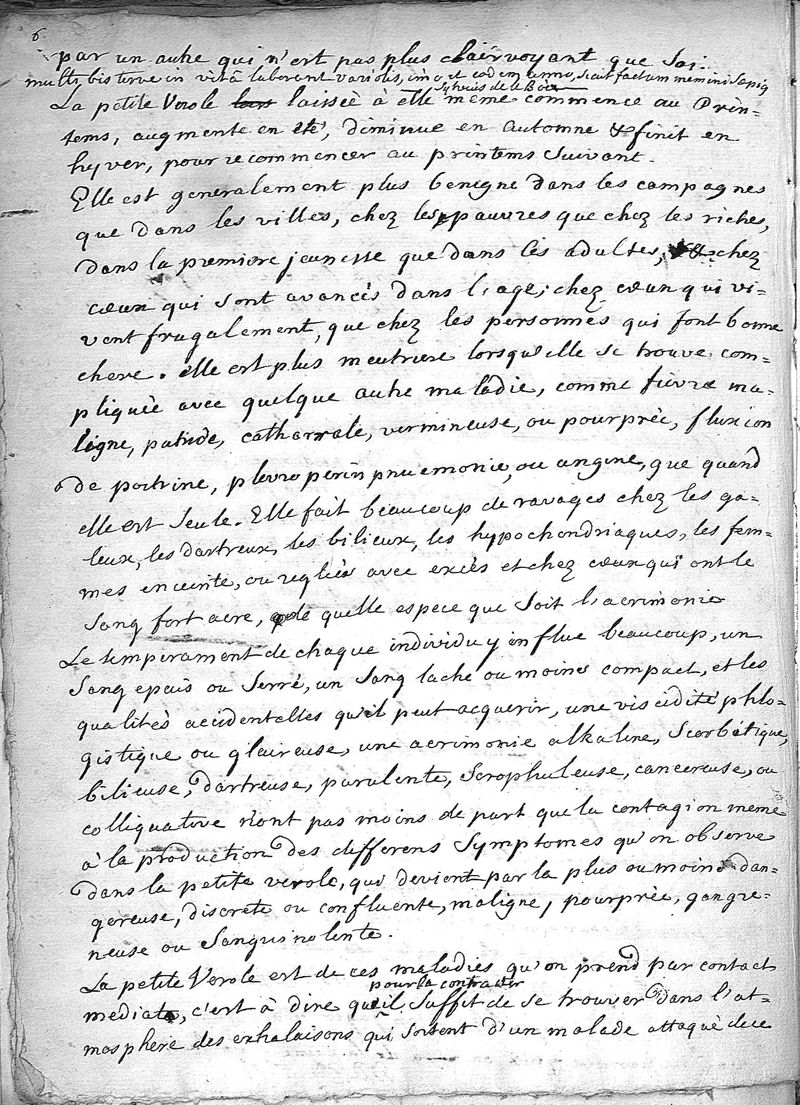 6.
par un autre qui n'est pas plus clairvoyant que soi.
multi bis terve in vitâ laborent variolis, imo et eodem anno, sicut factum memini sæpiq
Sylvius de le Boë
La petite Verole laissée à elle même commence au Prin-
tems, augmente en été, diminue en automne & finit en
hyver, pour recommencer au printems suivant.
Elle est generalement plus benigne dans les campagnes
que dans les villes, chez les pauvres que chez les riches,
dans la premiere jeunesse que dans les adultes, & chez
ceux qui sont avancés dans l'age; chez ceux qui vi-
vent frugalement, que chez les personnes qui font bonne
chere. elle est plus meutriere lorsqu'elle se trouve com-
pliquée avec quelque autre maladie, comme fievre ma-
ligne, putride, catharrale, vermineuse, ou pourprée, fluxion
de poitrine, plevroperipneumonie, ou angine, que quand
elle est seule. Elle fait beaucoup de ravages chez les ga-
leux, les dartreux, les bilieux, les hypochondriaques, les fem-
mes enceinte, ou reglées avec excès et chez ceux qui ont le
sang fort acre, de quelle espece que soit l'acrimonie
Le temperament de chaque individu y influe beaucoup, un
sang epais ou serré, un sang lache ou moins compact, et les
qualités accidentelles qu'il peut acquerir, une viscidité phlo-
gistique ou glaireuse, une acrimonie alkaline, scorbutique,
bilieuse, dartreuse, purulente, scrophuleuse, cancereuse, ou
colliquative n'ont pas moins de part que la contagion meme
à la production des differens symptomes qu'on observe
dans la petite verole, qui devient par la plus ou moins dan-
gereuse, discrete ou confluente, maligne, pourprée, gangre-
neuse ou sanguinolente.
La petite Verole est de ces maladies qu'on prend par contact
pour la contracter
mediate, c'est à dire qu'il suffit de se trouver dans l'at-
mosphere des exhalaisons qui sortent d'un malade attaqué de ce